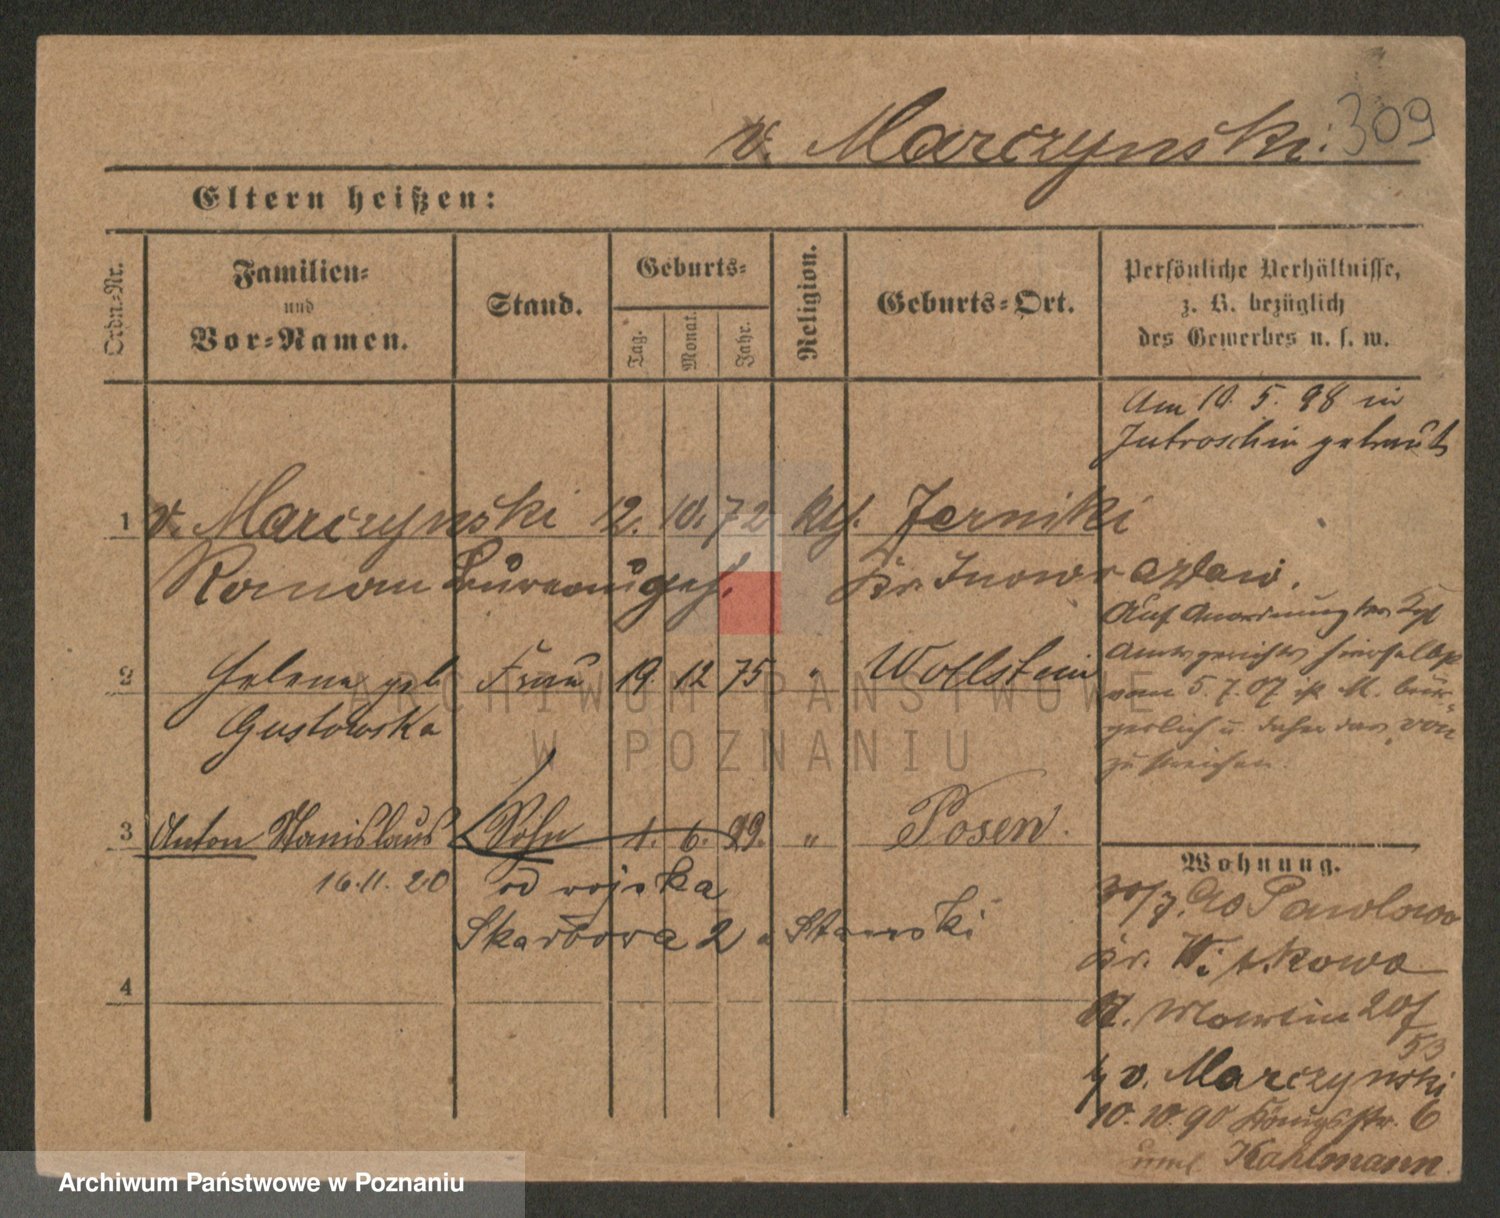 v. Marczynski.
309
Eltern heißen:
Ordn.-Nr.
Familien-
und
Vor-Namen.
Stand.
Geburts-
Tag.
Monat.
Jahr.
Religion.
Geburts-Ort.
Persönliche Verhältnisse,
z. B. bezüglich
des Gewerbes u. s. w.
Am 10. 5. 98 in
Jutroschin getraut
1 v. Marczynski 12. 10. 72 kth. Jerniki
Roman Bureaugeh. Kr. Inowrazlaw.
Auf Anordnung des Kgl
Amtsgerichts hierselbst
vom 5. 7. 07 ist M. bür-
gerlich u. daher das "von"
zu streichen.
2 Helene geb. Frau 19 12 75 " Wollstein
Gustowska
3 Anton Stanislaus Sohn 1. 6. 99. " Posen.
16.11.20 od wojska
Skarbowa 2 Stawski
4
Wohnung.
30/7. Pawlowo
Kr. Witkowo
St. Martin 20
53
v. Marczynski
10. 10. 90 Königsstr. 6
Kahlmann
ARCHIWUM PAŃSTWOWE
W POZNANIU
Archiwum Państwowe w Poznaniu